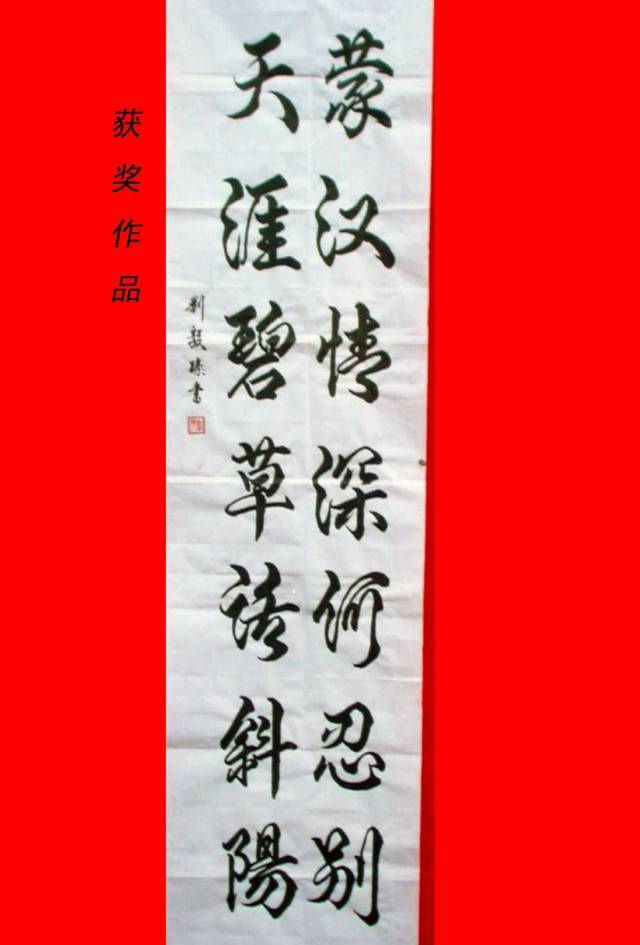 蒙汉情深何忍别
天涯碧草话斜陽
书
获奖作品